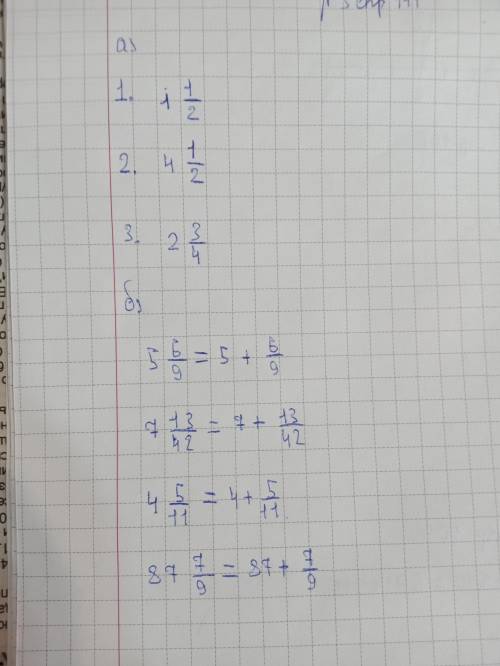 а)
1. 1 1/2
2. 4 1/2
3. 2 3/4
б)
5 6/9 = 5 + 6/9
7 13/42 = 7 + 13/42
4 5/11 = 4 + 5/11
87 7/9 = 87 + 7/9